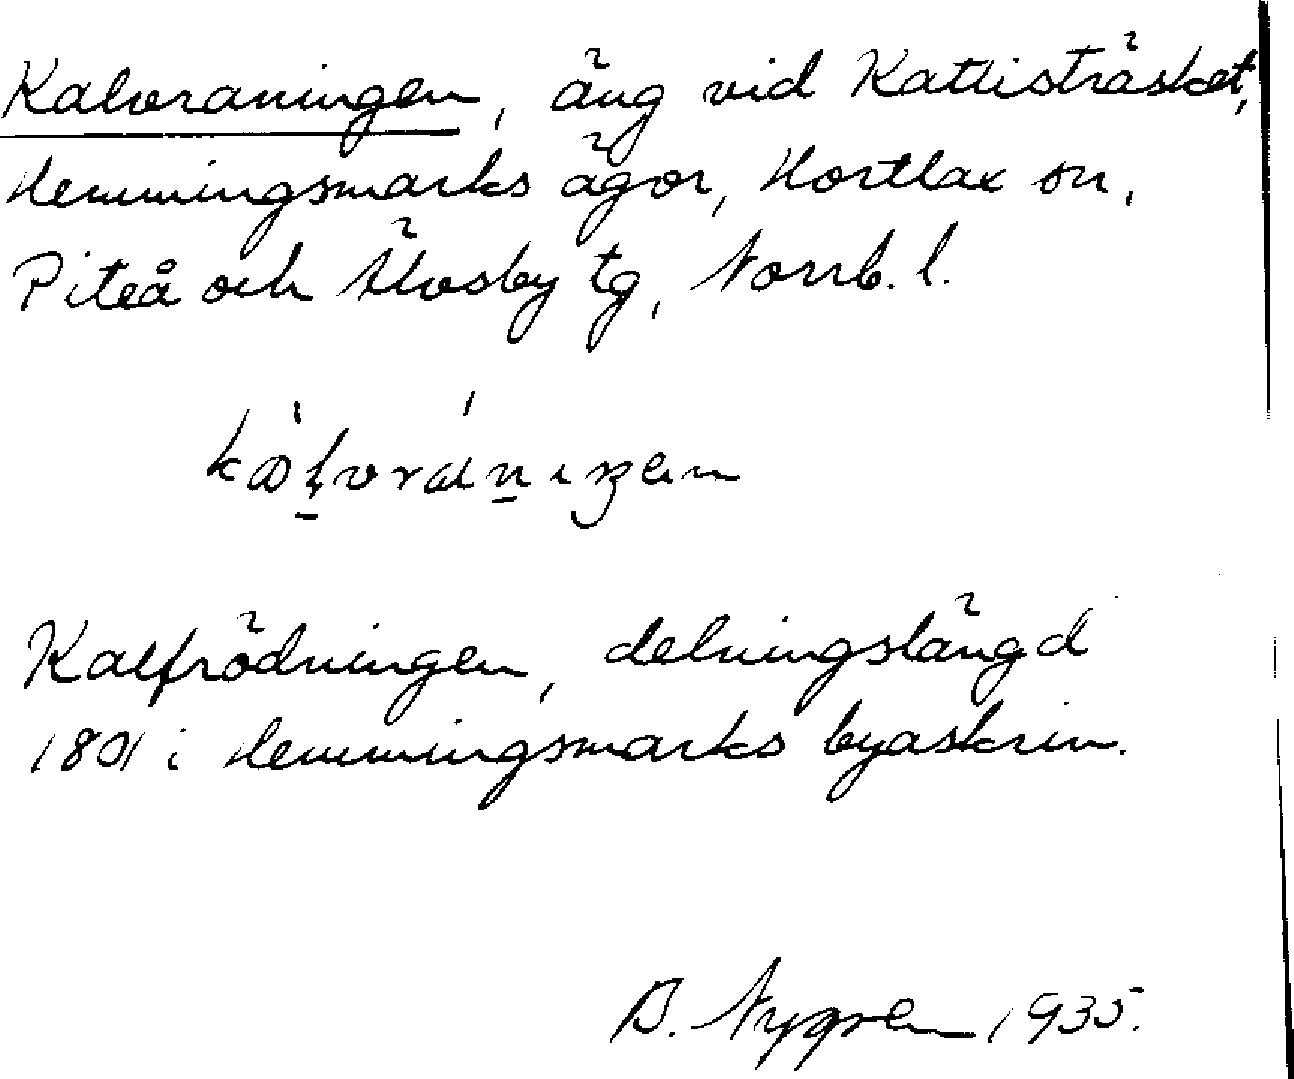 Kalvraningen, äng vid Kattisträsket,
Hemmingsmarks ägor, Hortlax sn,
Piteå och Älvsby tg, Norrb. l.
Kalfrödningen, delningslängd
1801 i Hemmingsmarks byaskrin.
B. Nygren 1935.